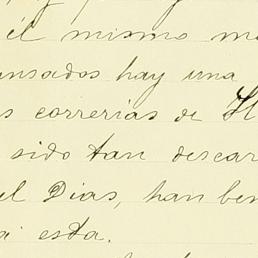 él mismo m
ansados hay una
s correrias de H
sido tan descar
el Dias, han ben
a esta.